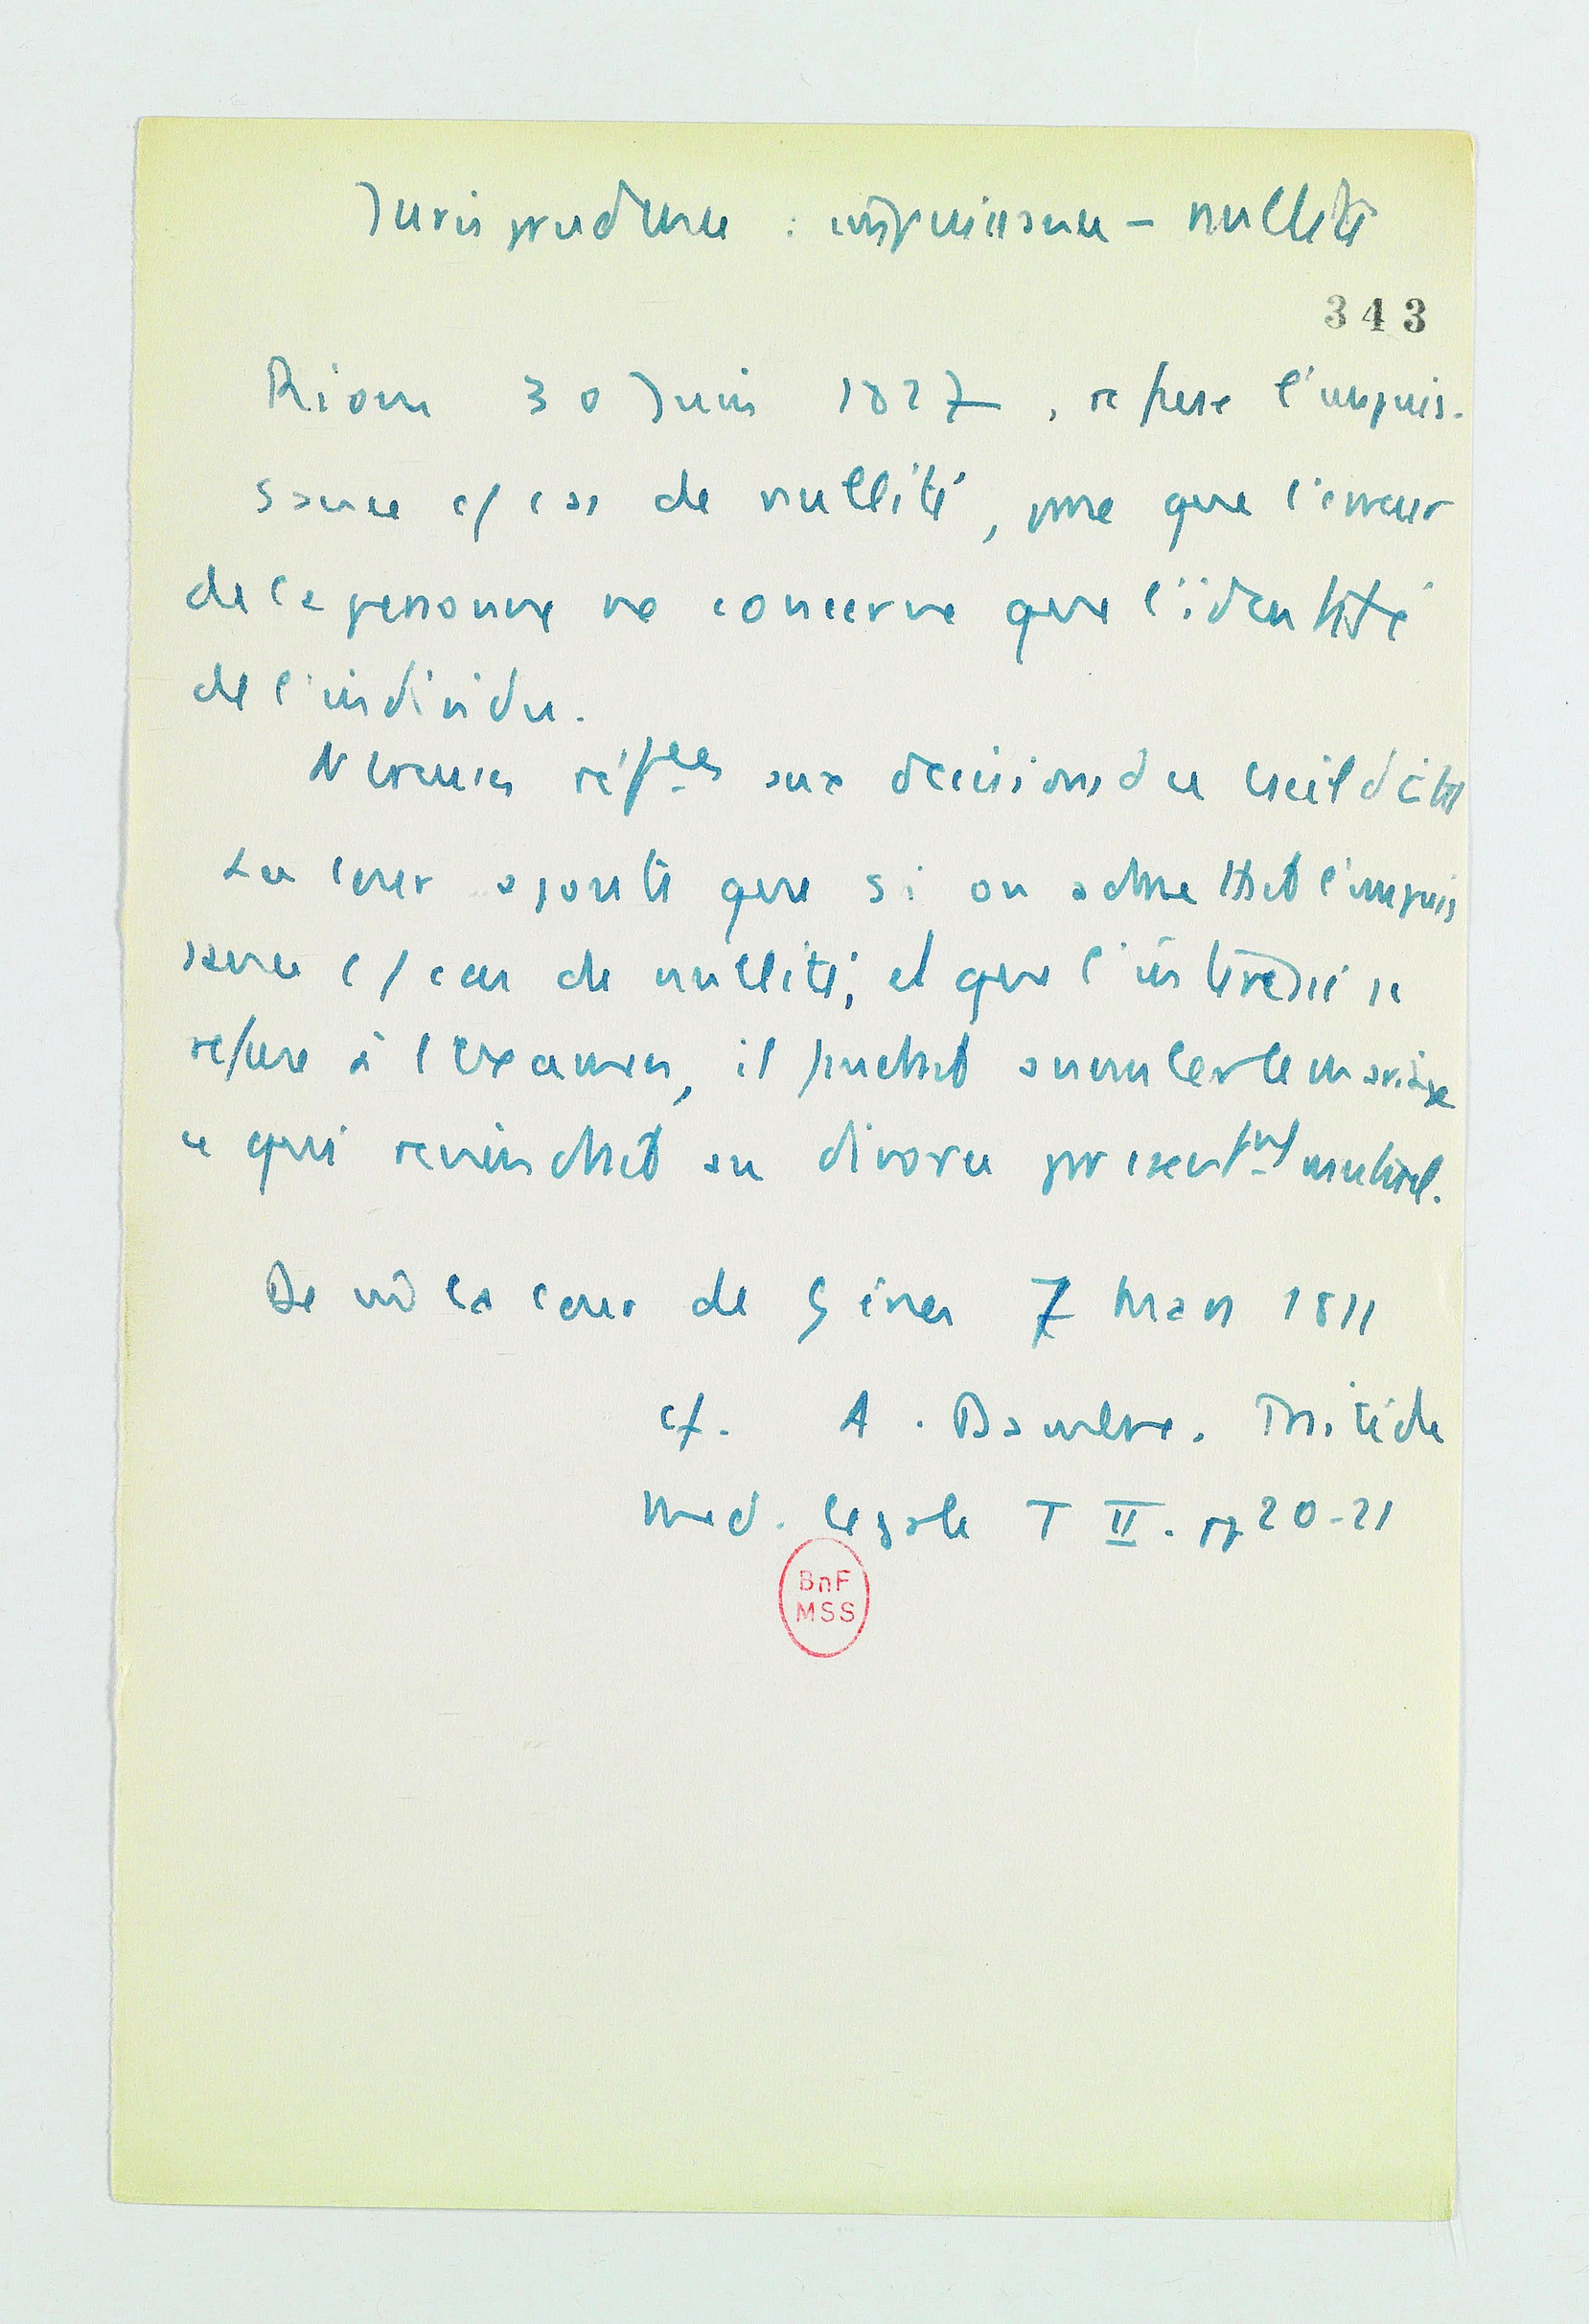 Jurisprudence : impuissance – nullité
343
Riom 30 Juin 1827, refuse l'impuis-
sance c/ cas de nullité, pne que l'erreur
de la personne ne concerne que l'identité
de l'individu.
Nbreuses réf^ces aux décisions du Conseil d'État
La cour ajoute que si on admettait l'impuis
sance c/ cas de nullité, et que l'intéressé se
refuse à l'examen, il faudrait annuler le mariage
ce qui reviendrait au divorce par consent^ment mutuel.
De m̂ la cour de Gênes 7 Mars 1811
cf. A. Traité de
Med. légale T II. pp 20-21
BnF
MSS